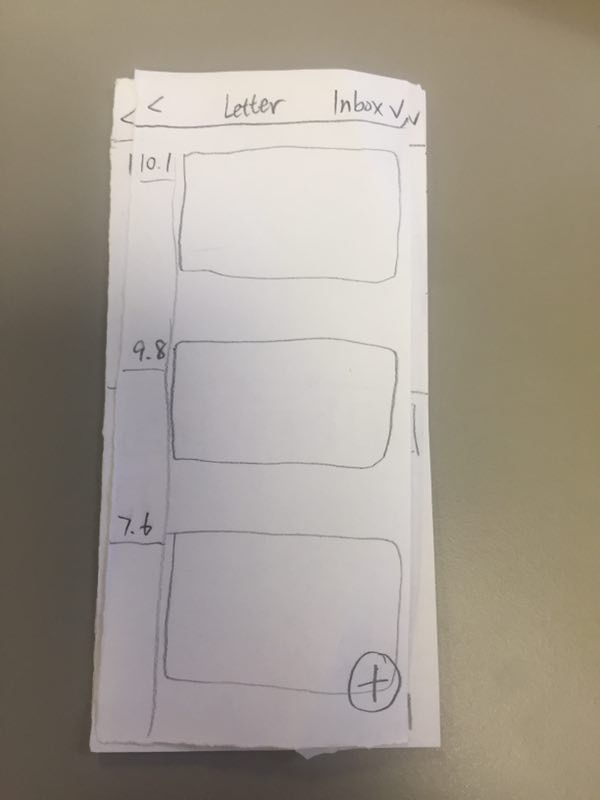 < Letter Inbox ∨
10.1
9.8
7.6
+